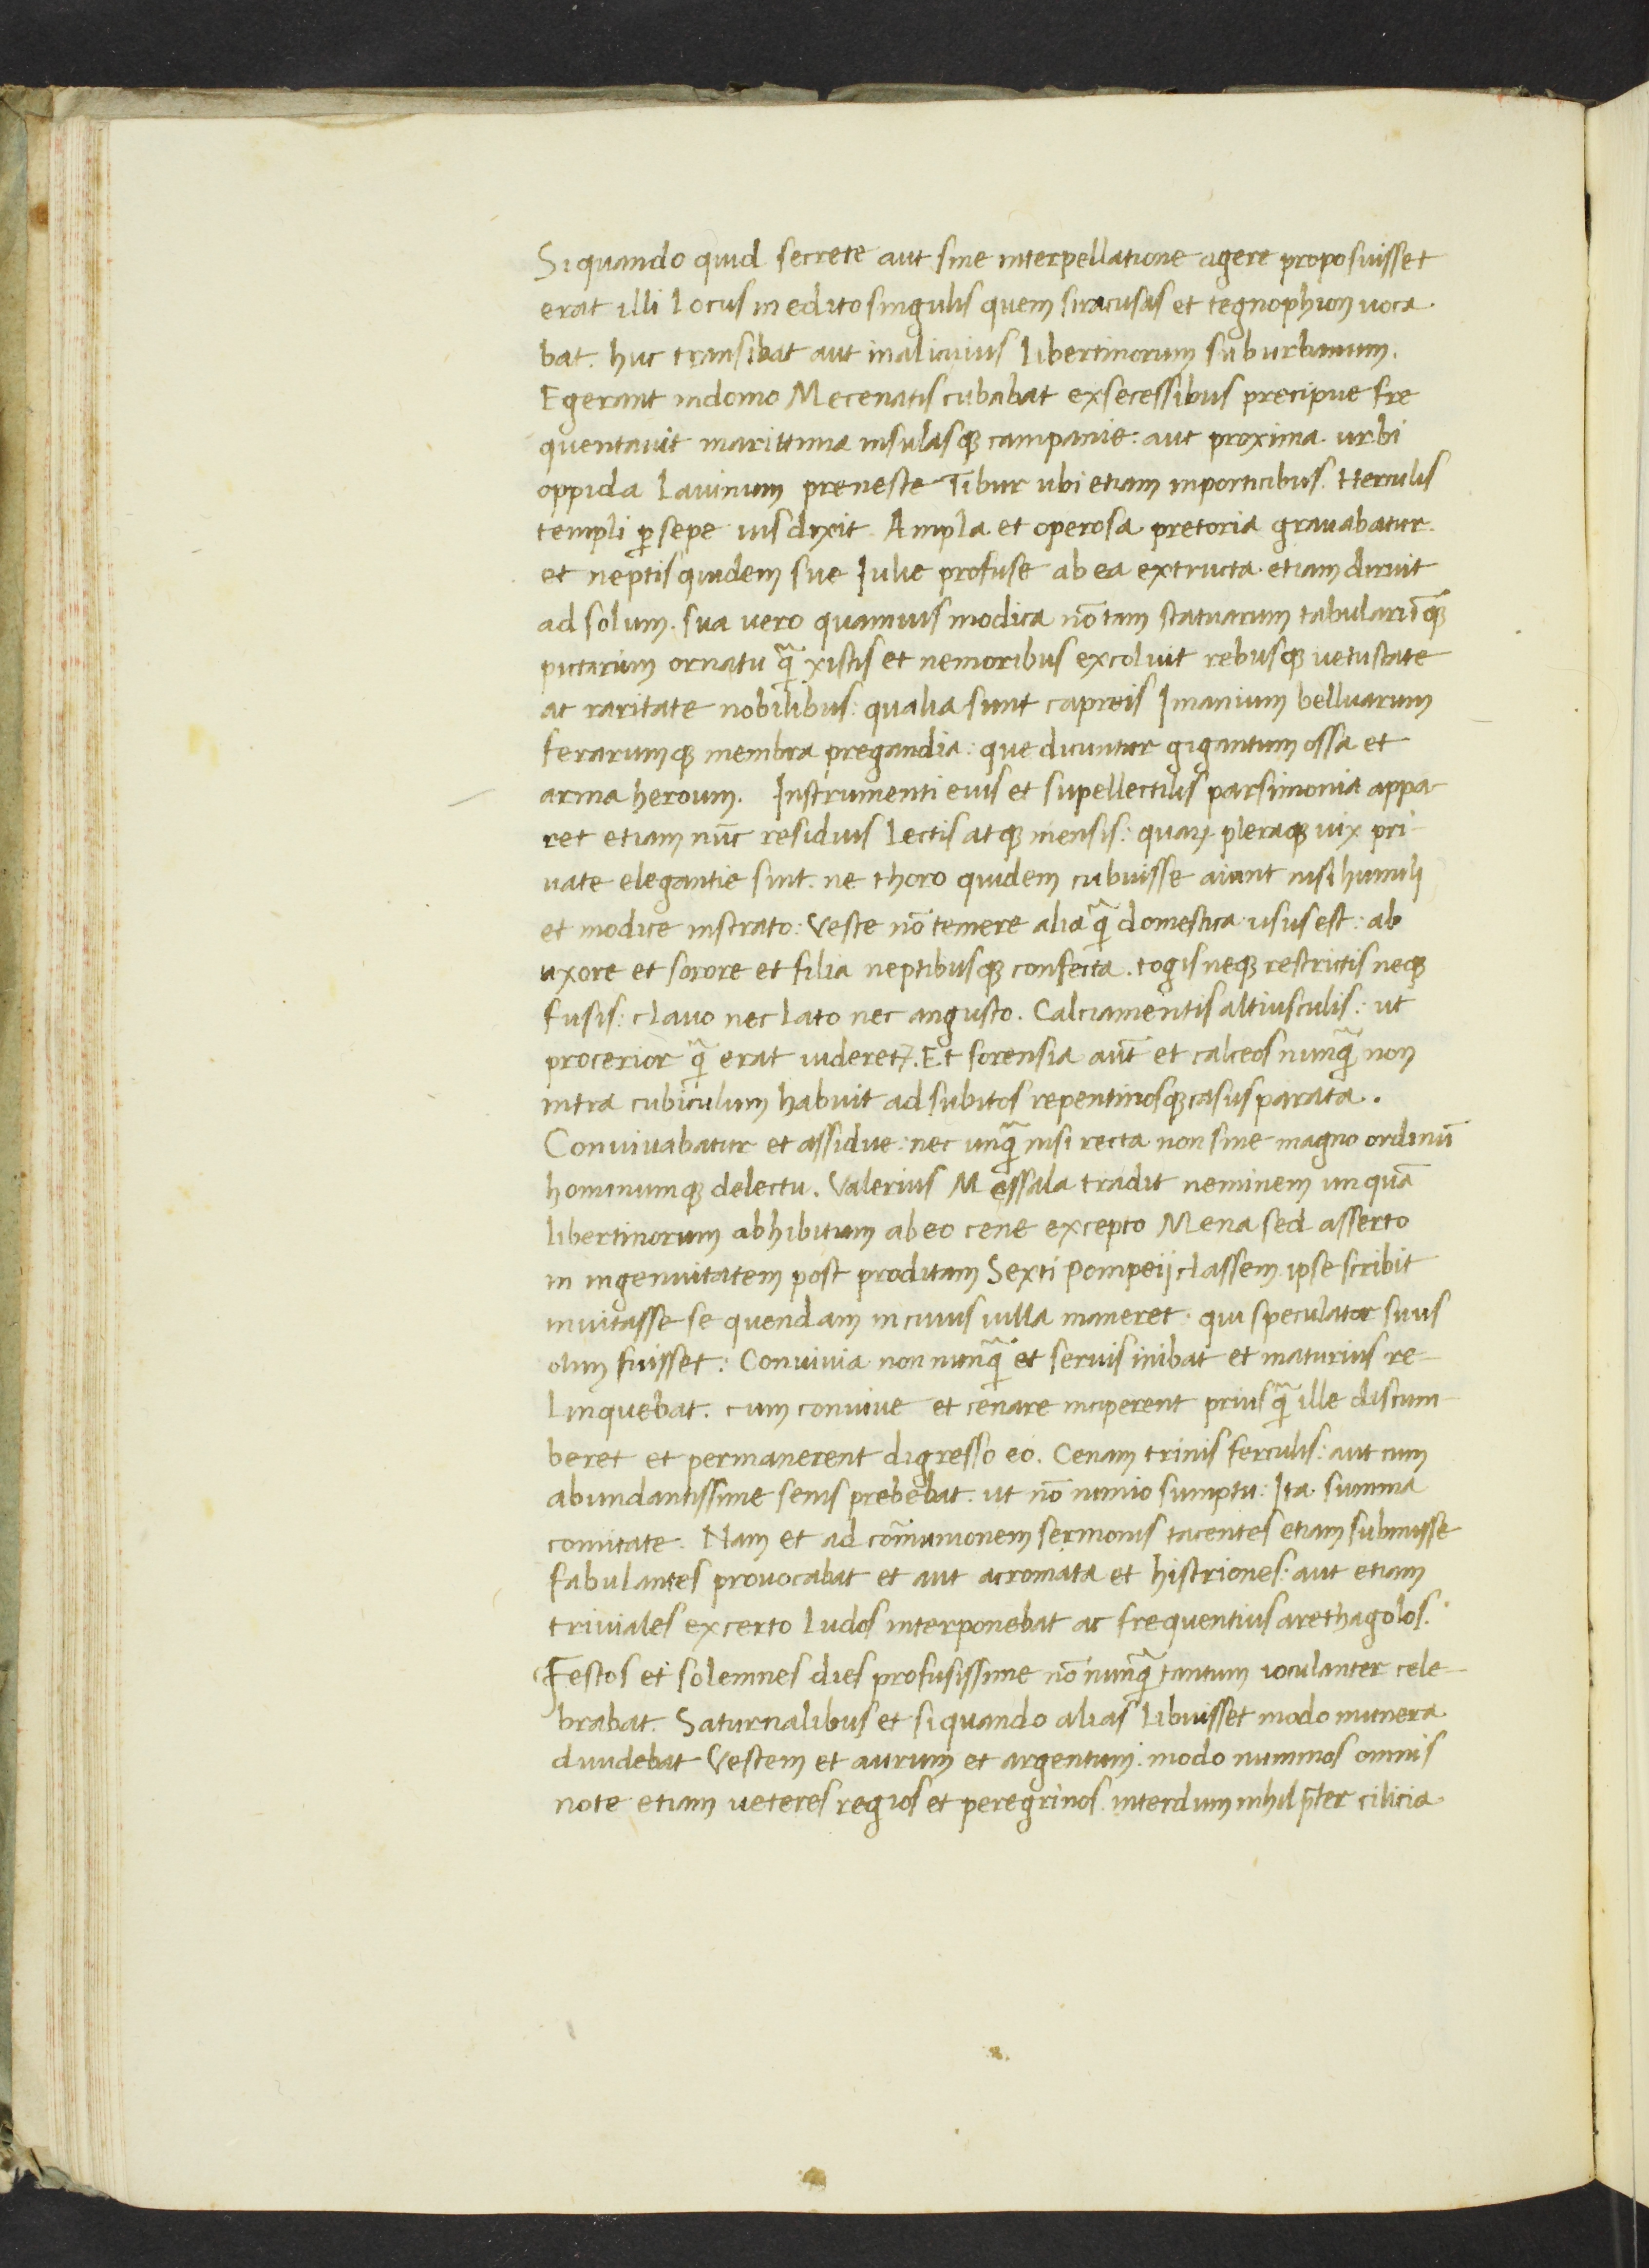 Si quando quid secrete aut sine interpellatione agere proposuisset
erat illi locus in edito singulis quem siracusas et tegnophion uoca
bat. huc transibat aut in alicuius libertinorum suburbanum.
Egerant in domo Mecenatis cubabat ex secessibus precipue fre
quentauit marittima insulasqꝫ campanie: aut proxima urbi
oppida Lauinum preneste Tibur ubi etiam in porticibus Herculis
templi ꝑsepe ius dixit. Ampla et operosa pretoria grauabatur.
et neptis quidem sue Iulie profuse ab ea extructa etiam diruit
ad solum. sua uero quamuis modica nō tam statuarum tabularūqꝫ
pictarum ornatu q̄ xistis et nemoribus excoluit rebusqꝫ uetustate
ac raritate nobilibus: qualia sunt capreis Imanium belluarum
ferarumqꝫ membra pregandia: que dicuntur gigantum ossa et
arma heroum. Instrumenti eius et supellectilis parsimonia appa
ret etiam nūc residuis lectis atqꝫ mensis: quaꝝ pleraqꝫ uix pri
uate elegantie sint. ne thoro quidem cubuisse aiunt nisi humili
et modice instrato: Veste nō temere alia q̄ domestica usus est: ab
uxore et sorore et filia neptibusqꝫ confecta. togis neqꝫ restrictis neqꝫ
fusis: clauo nec lato nec angusto. Calciamentis altiusculis: ut
procerior q̄ erat uideretꝛ. Et forensia aūt et calceos nunq̄ non
intra cubiculum habuit ad subitos repentinosqꝫ casus parata.
Conuiuabatur et assidue: nec unq̄ nisi recta non sine magno ordinū
hominumqꝫ delectu. Valerius Messala tradit neminem unquā
libertinorum abhibitum ab eo cene excepto Mena sed asserto
in ingenuitatem post proditam Sexti Pompeij classem ipse scribit
inuitasse se quendam in cuius uilla maneret: qui speculator suus
olim fuisset: Conuiuia non nunq̄ et seruis inibat et maturius re-
linquebat. cum conuiue et cenare inciperent prius q̄ ille discum
beret et permanerent digresso eo. Cenam trinis ferculis: aut cum
abundantissime senis prebebat. ut nō nimio sumptu: Ita summa
comitate. Nam et ad cōmunionem sermonis tacentes etiam submisse
fabulantes prouocabat et aut acromata et histriones: aut etiam
triuiales ex certo ludos interponebat ac frequentius arethagolos.
Festos et solemnes dies profusissime nō nunq̄ tantum ioculanter cele-
brabat. Saturnalibus et si quando alias libuisset modo munera
diuidebat Vestem et aurum et argentum: modo nummos omnis
note etiam ueteres regios et peregrinos. interdum nihil p̄ter cilicia